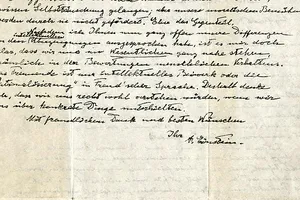 wissen Selbsttäuschung gelangen, aber unsere moralischen Bemühun
werden durch sie nicht gefördert. Eher das Gegenteil.
Nachdem ich Ihnen nun ganz offen unsere Differenzen
intellektuellen
in den Überzeugungen ausgesprochen habe, ist es mir doch
klar, dass wir uns im Wesentlichen ganz nahe stehen
nämlich in den Bewertungen menschlichen Verhaltens.
Das Trennende ist nur intellektuelles Beiwerk oder die
"Rationalisierung" in Freud'scher Sprache. Deshalb denke
ich, dass wir uns recht wohl verstehen würden, wenn wir
uns über konkrete Dinge unterhielten.
Mit freundlichem Dank und besten Wünschen
Ihr A. Einstein.